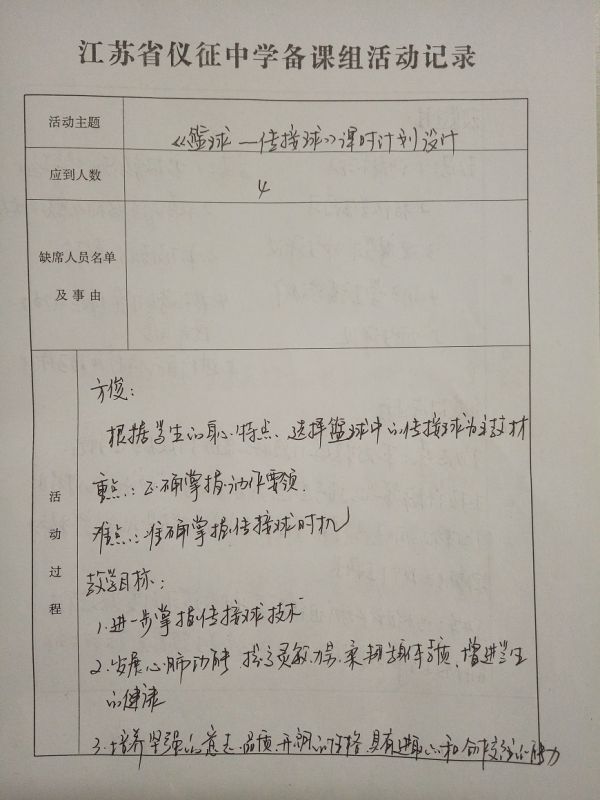 江苏省仪征中学备课组活动记录
活动主题
《篮球—传接球》课时计划设计
应到人数
4
缺席人员名单
及事由
活动过程
方俊：
根据学生的身心特点、选择篮球中的传接球为主教材
重点：正确掌握动作要领.
难点：准确掌握传接球时机
教学目标：
1.进一步掌握传接球技术
2.发展心肺功能、提高灵敏、力量、柔韧等身体素质、增进学生
的健康
3.培养坚强的意志品质、开朗的性格、具有进取心和合作交往的能力